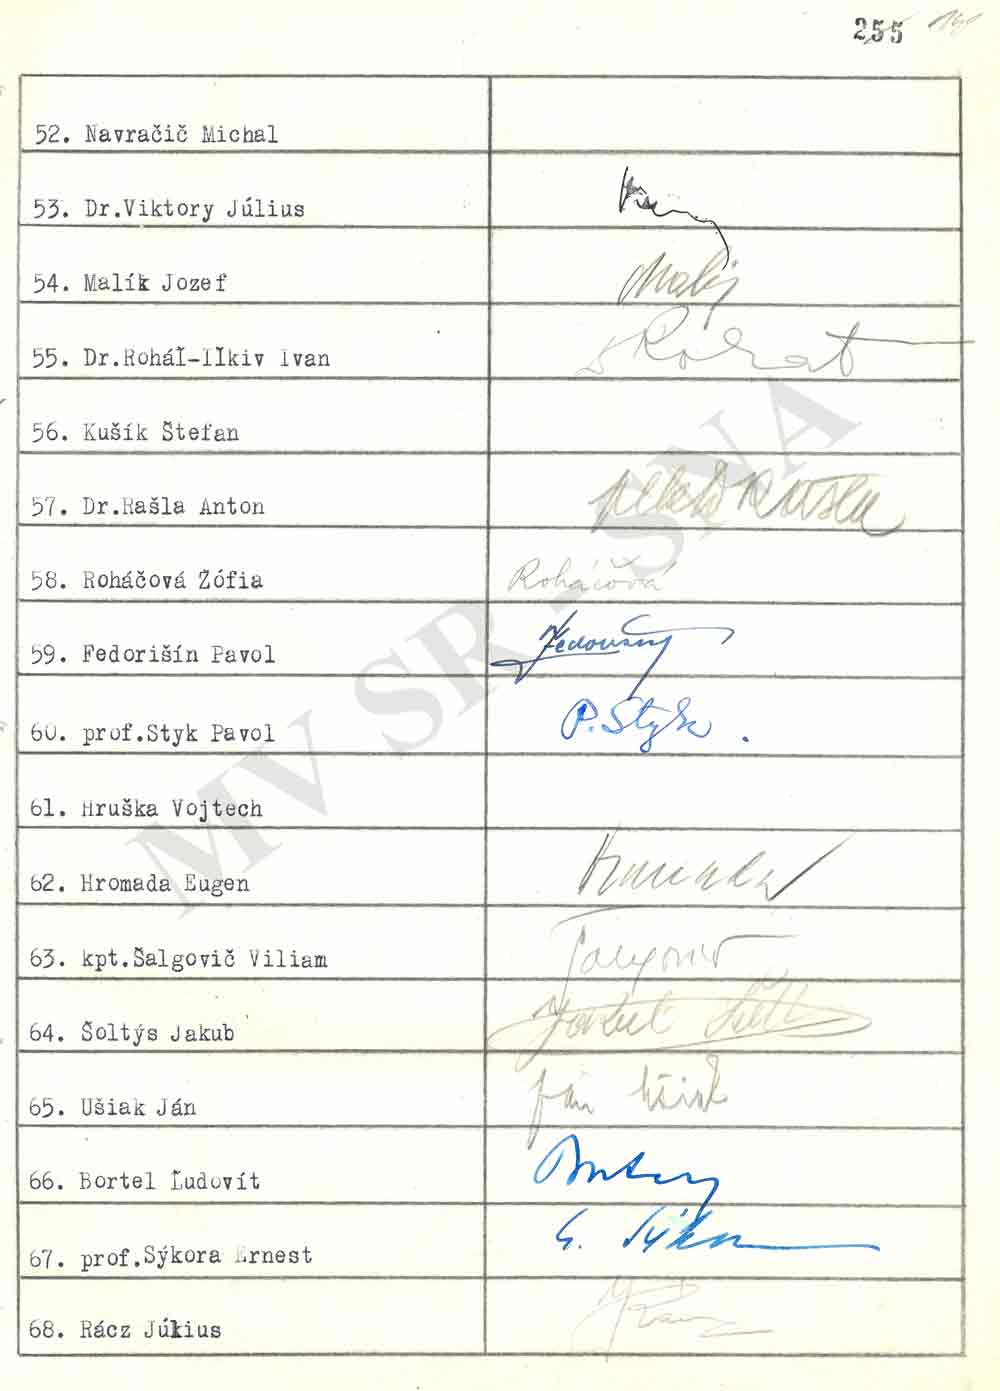 255
52. Navračič Michal
53. Dr.Viktory Július
54. Malík Jozef
Malík
55. Dr.Roháľ-Iľkiv Ivan
56. Kušík Štefan
57. Dr.Rašla Anton
Rašla
58. Roháčová Žófia
Roháčová
59. Fedorišín Pavol
60. prof.Styk Pavol
P. Styk.
61. Hruška Vojtech
62. Hromada Eugen
Hromada
63. kpt.Šalgovič Viliam
Šalgovič
64. Šoltýs Jakub
65. Ušiak Ján
Ján Ušiak
66. Bortel Ľudovít
67. prof.Sýkora Ernest
68. Rácz Július
MV SR - SNA